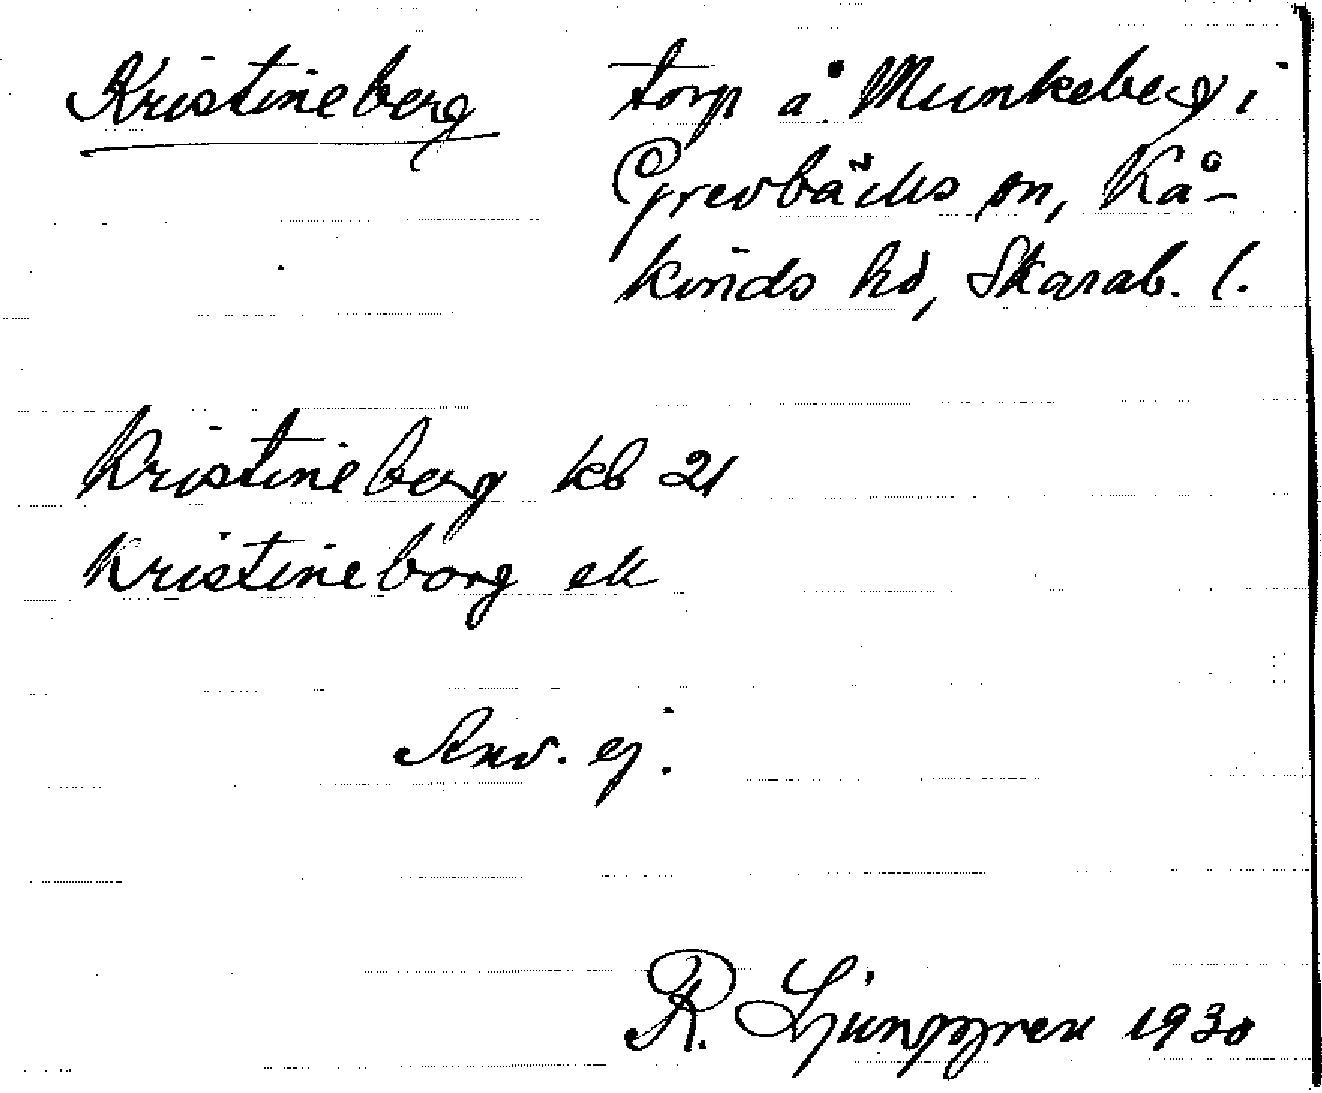 Kristineberg torp å Munkeberg i
Grevbäcks sn, Kå-
kinds hd, Skarab. l.
Kristineberg kb 21
Kristineborg ek
Anv. ej.
R. Ljunggren 1930